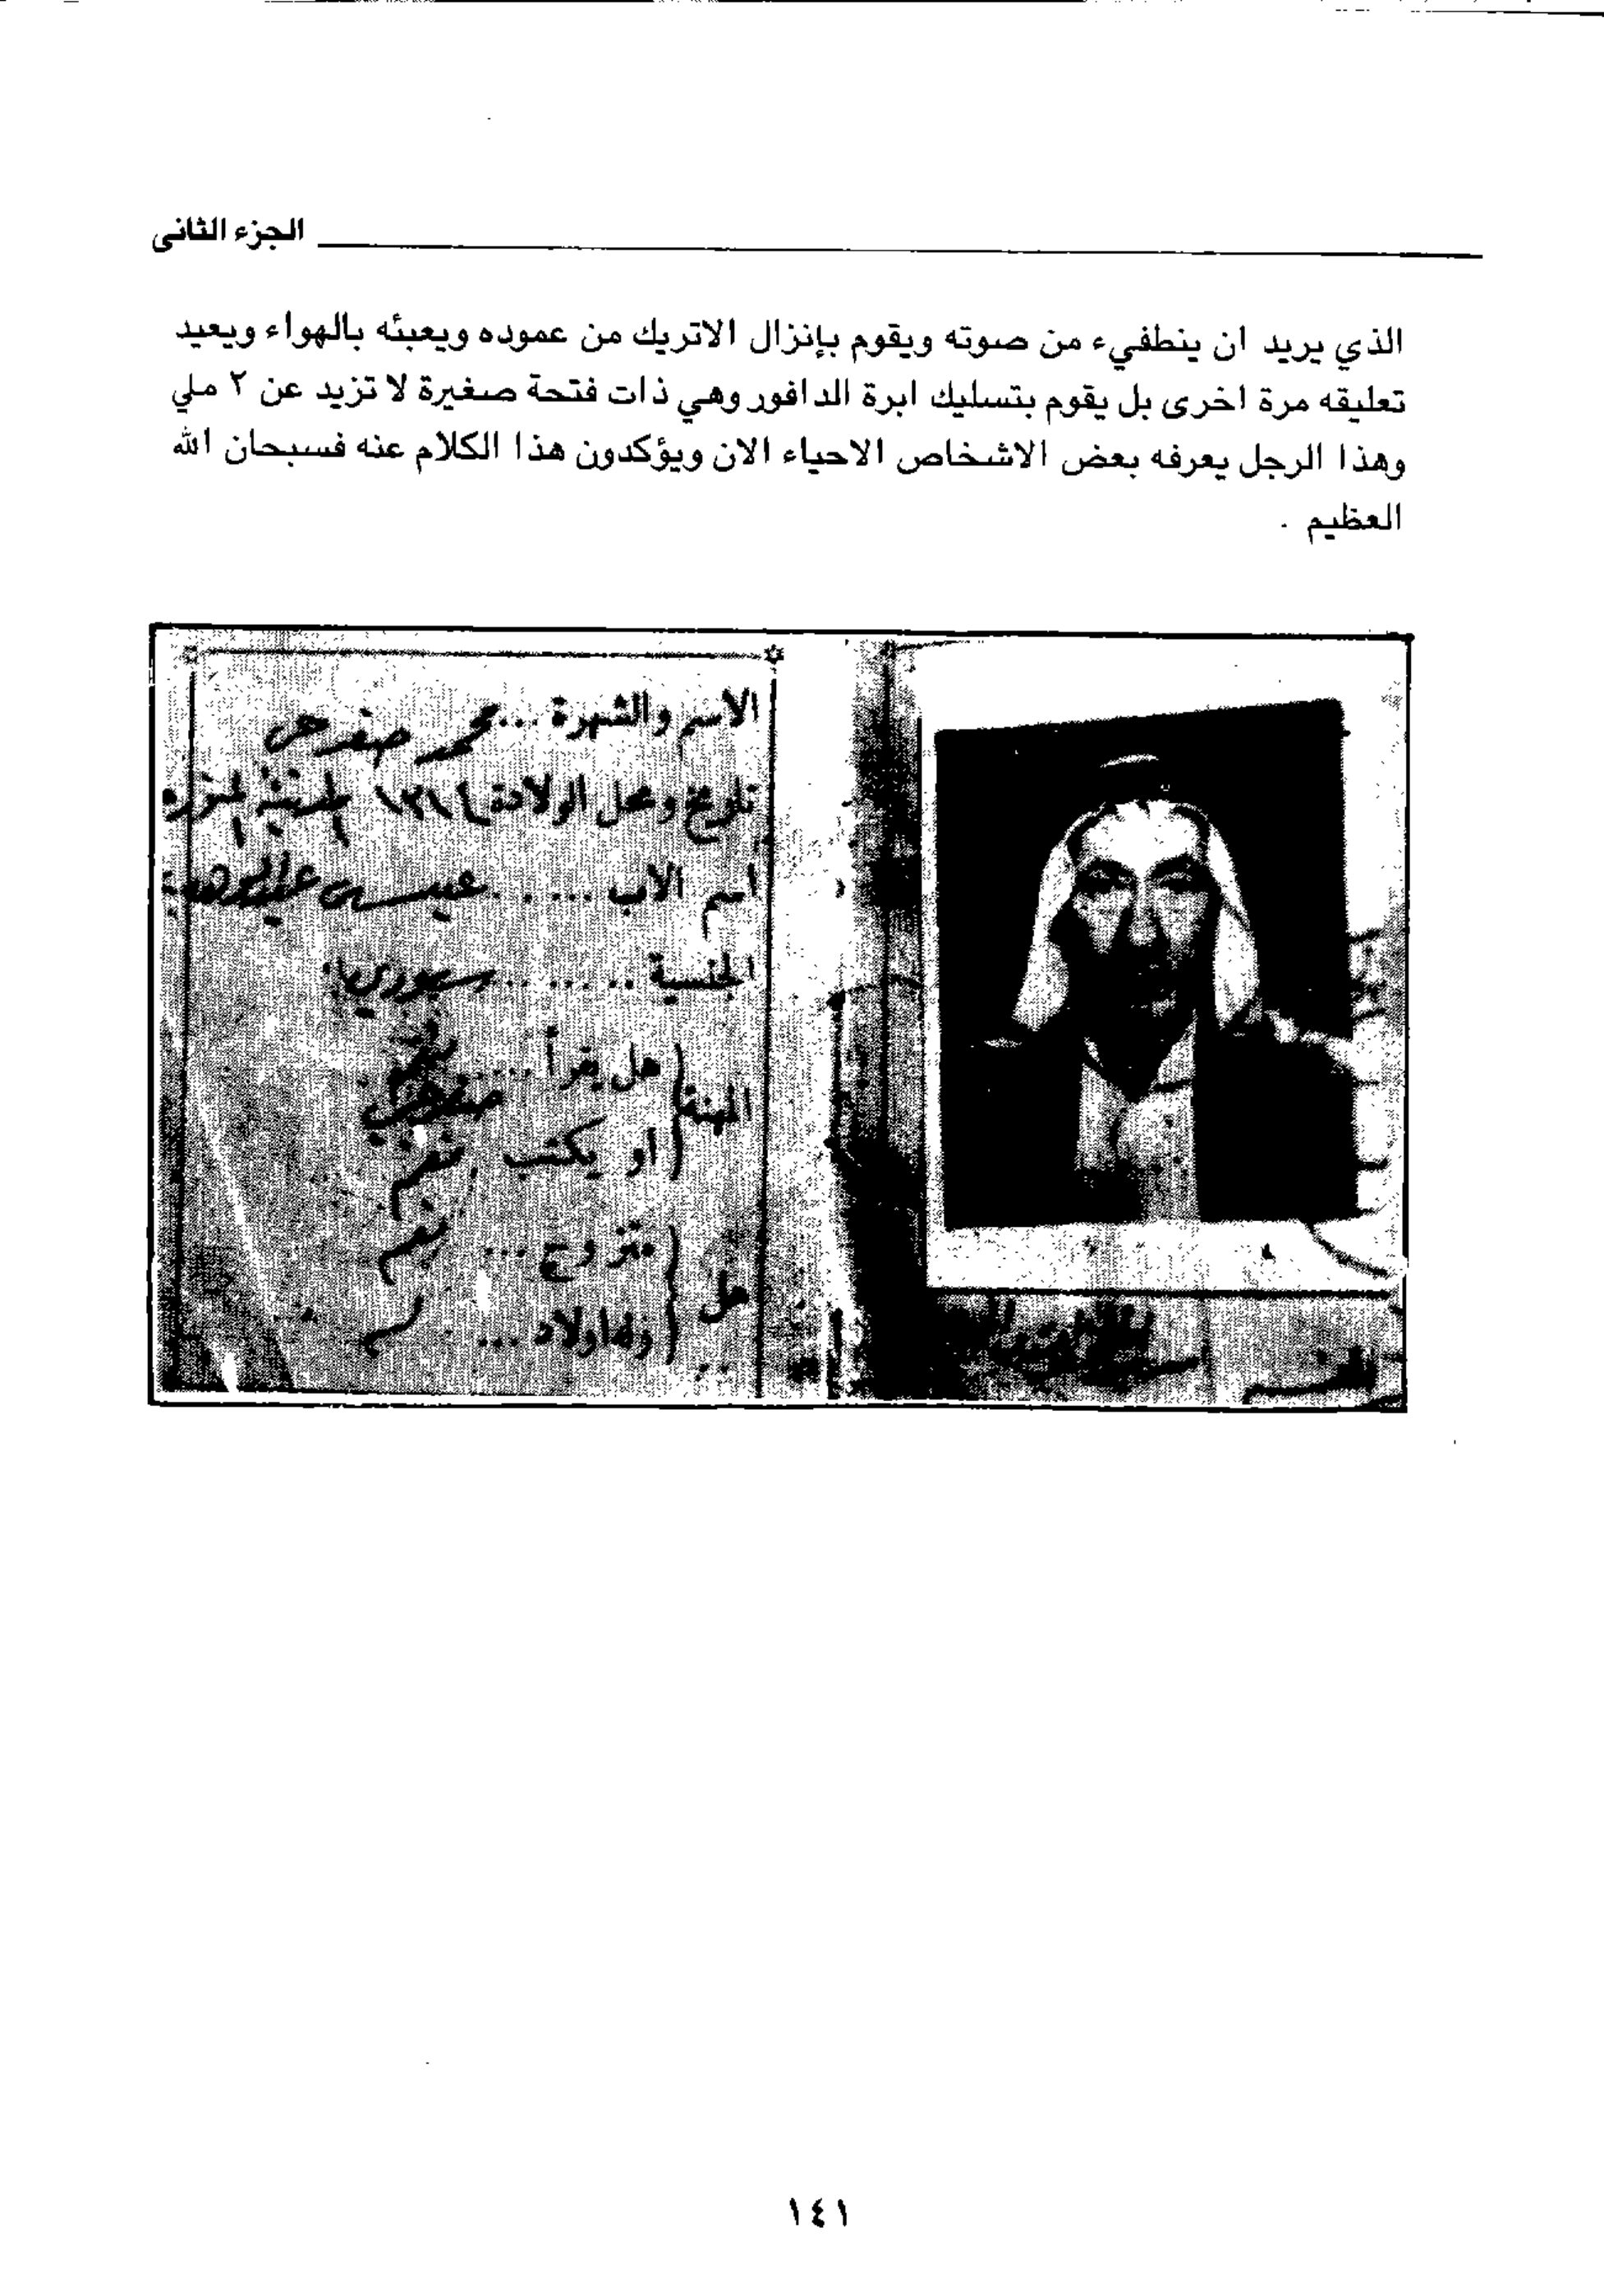 الجزء الثانى
الذي يريد ان ينطفيء من صوته ويقوم بإنزال الاتريك من عموده ويعبئه بالهواء ويعيد
تعليقه مرة اخرى بل يقوم بتسليك ابرة الدافور وهي ذات فتحة صغيرة لا تزيد عن ٢ ملي
وهذا الرجل يعرفه بعض الاشخاص الاحياء الان ويؤكدون هذا الكلام عنه فسبحان الله
العظيم .
الاسم والشهرة ... محمد صفرجي
تاريخ ومحل الولادة المدينة المنوره
اسم الأب ...... عيسى
الجنسية ......
المهنة
هل يقرأ .... نعم
او يكتب نعم
هل
متزوج ... نعم
وله اولاد ...
١٤١